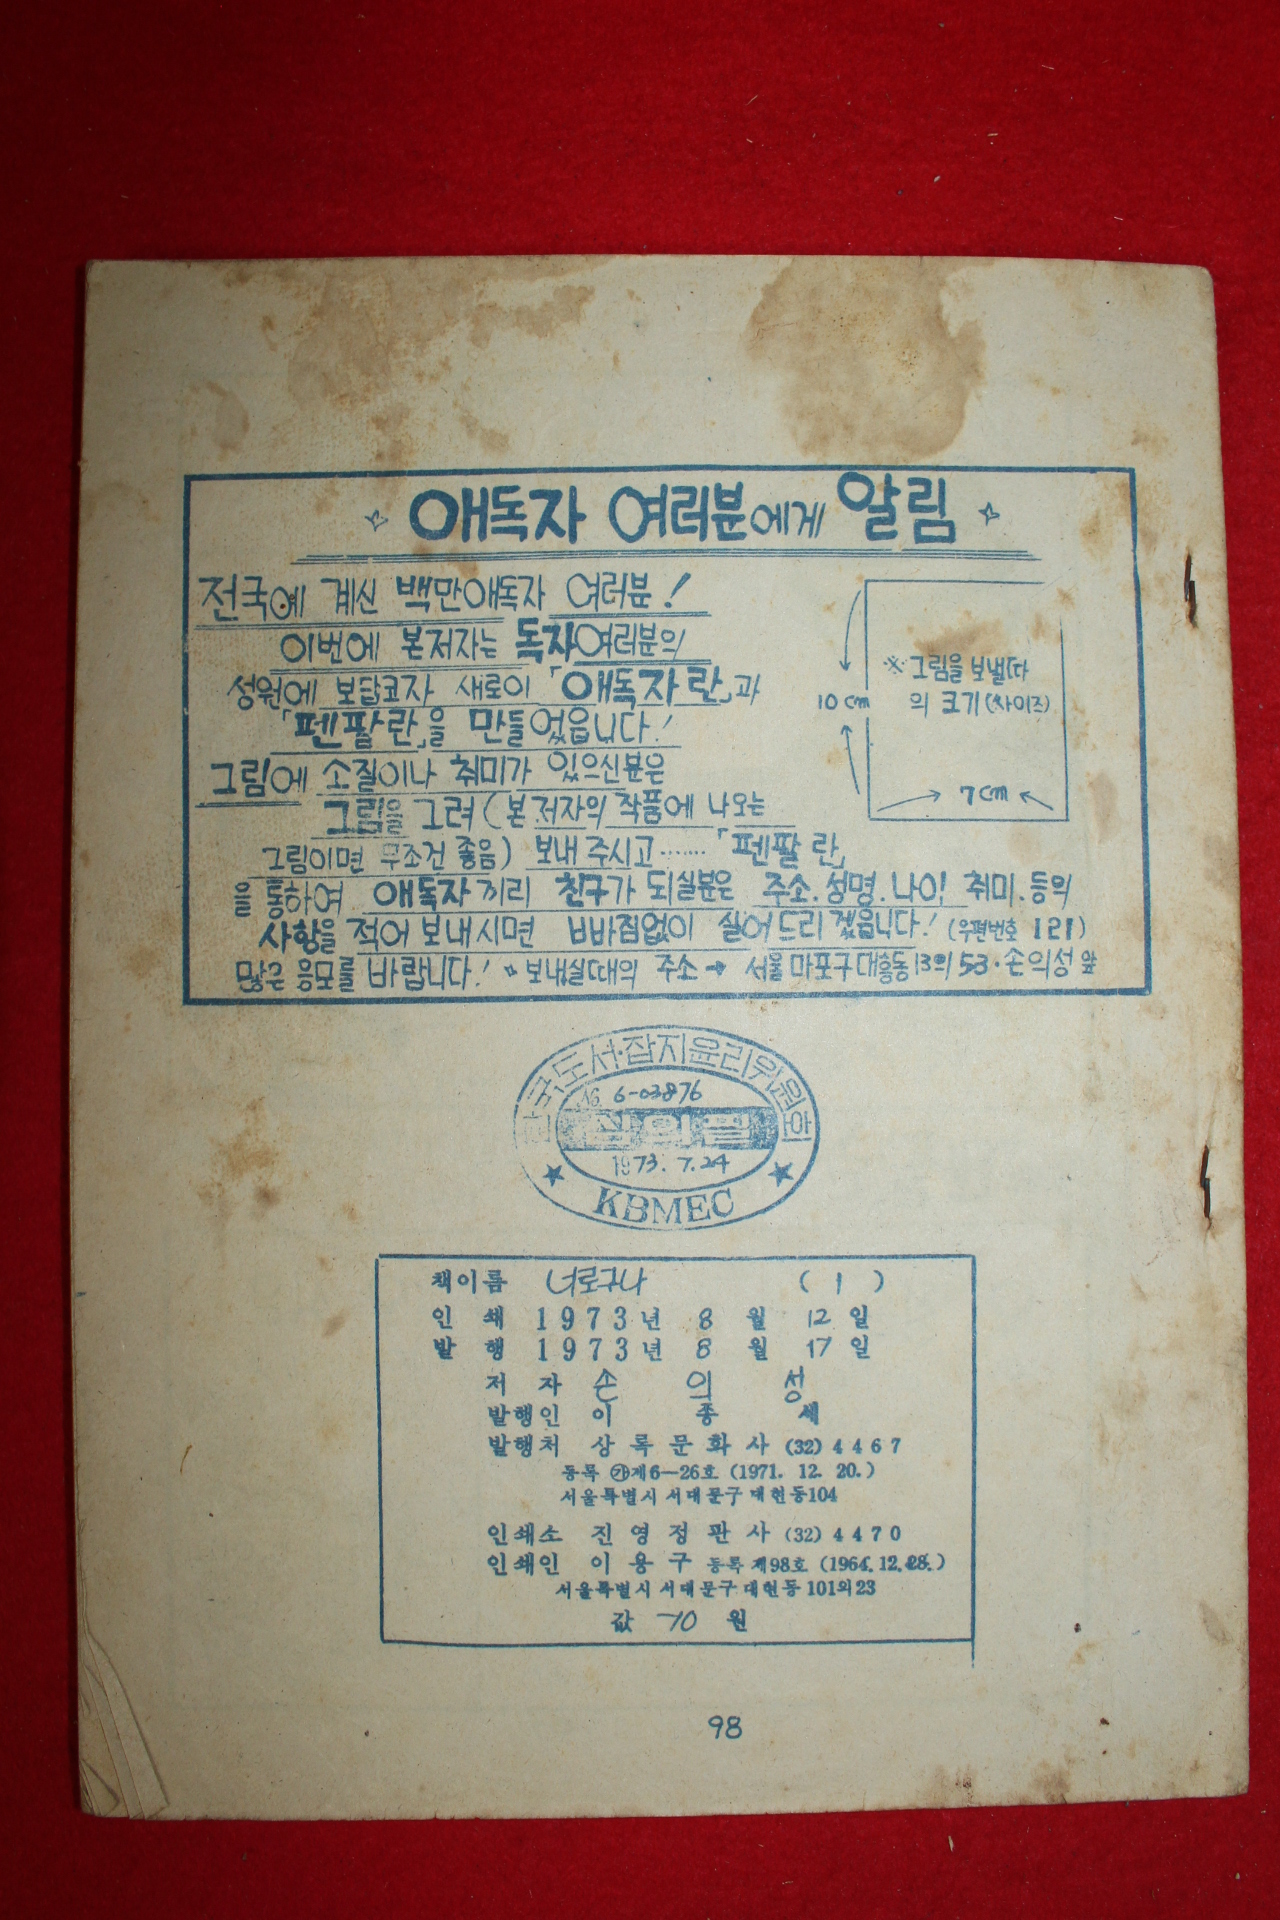 애독자 여러분에게 알림
전국에 계신 백만애독자 여러분!
이번에 본저자는 독자여러분의
성원에 보답코자 새로이 「애독자란」과
「펜팔란」을 만들었읍니다!
그림에 소질이나 취미가 있으신분은
그림을 그려 (본 저자의 작품에 나오는
그림이면 무조건 좋음) 보내 주시고······· 「펜팔 란」
을 통하여 애독자끼리 친구가 되실분은 주소.성명.나이. 취미.등의
사항을 적어 보내시면 빠짐없이 실어드리겠읍니다! (우편번호 121)
많은 응모를 바랍니다! 보내실때의 주소→ 서울 마포구 대흥동 13의 53·손의성 앞
※ 그림을 보낼때
의 크기(싸이즈)
10 cm
7 cm
한국도서·잡지윤리위원회
6-03876
심의필
1973. 7.24
★ KBMEC ★
책이름 너로구나 ( 1 )
인 쇄 1973년 8 월 12 일
발 행 1973년 8 월 17 일
저 자 손 의 성
발행인 이 종 세
발행처 상 록 문 화 사 (32) 4 4 6 7
등록 ㉮제6—26호 (1971. 12. 20.)
서울특별시 서대문구 대현동104
인쇄소 진 영 정 판 사 (32) 4 4 7 0
인쇄인 이 용 구 등록 제98호 (1964. 12. 28.)
서울특별시 서대문구 대현동 101의23
값 70 원
98